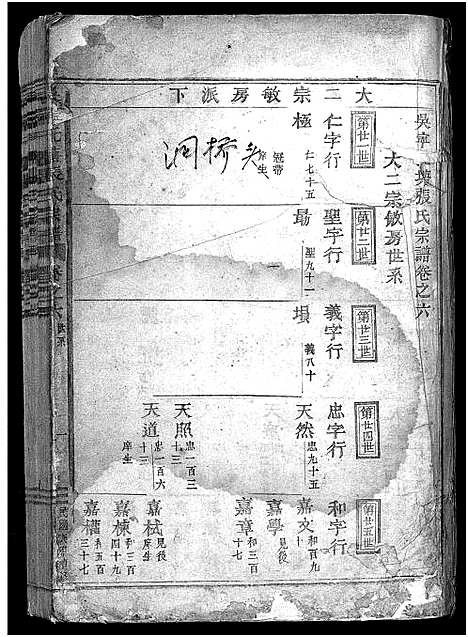 吳寧 張氏宗譜卷之六
大二宗敏房世系
大二宗敏房派下
第廿一世
仁字行
極
仁七十五
冠帶
庠生
洞桥头
第廿二世
聖字行
勗
聖九十二
第廿三世
義字行
塤
義八十
第廿四世
忠字行
天然
忠九十五
天照
忠一百三十三
天道
忠一百六十三
庠生
第廿五世
和字行
嘉文
和百九十
嘉學
見後
嘉章
和三百十七
嘉栻
見後
庠生
嘉棟
和三百四十九
嘉權
和五百三十七